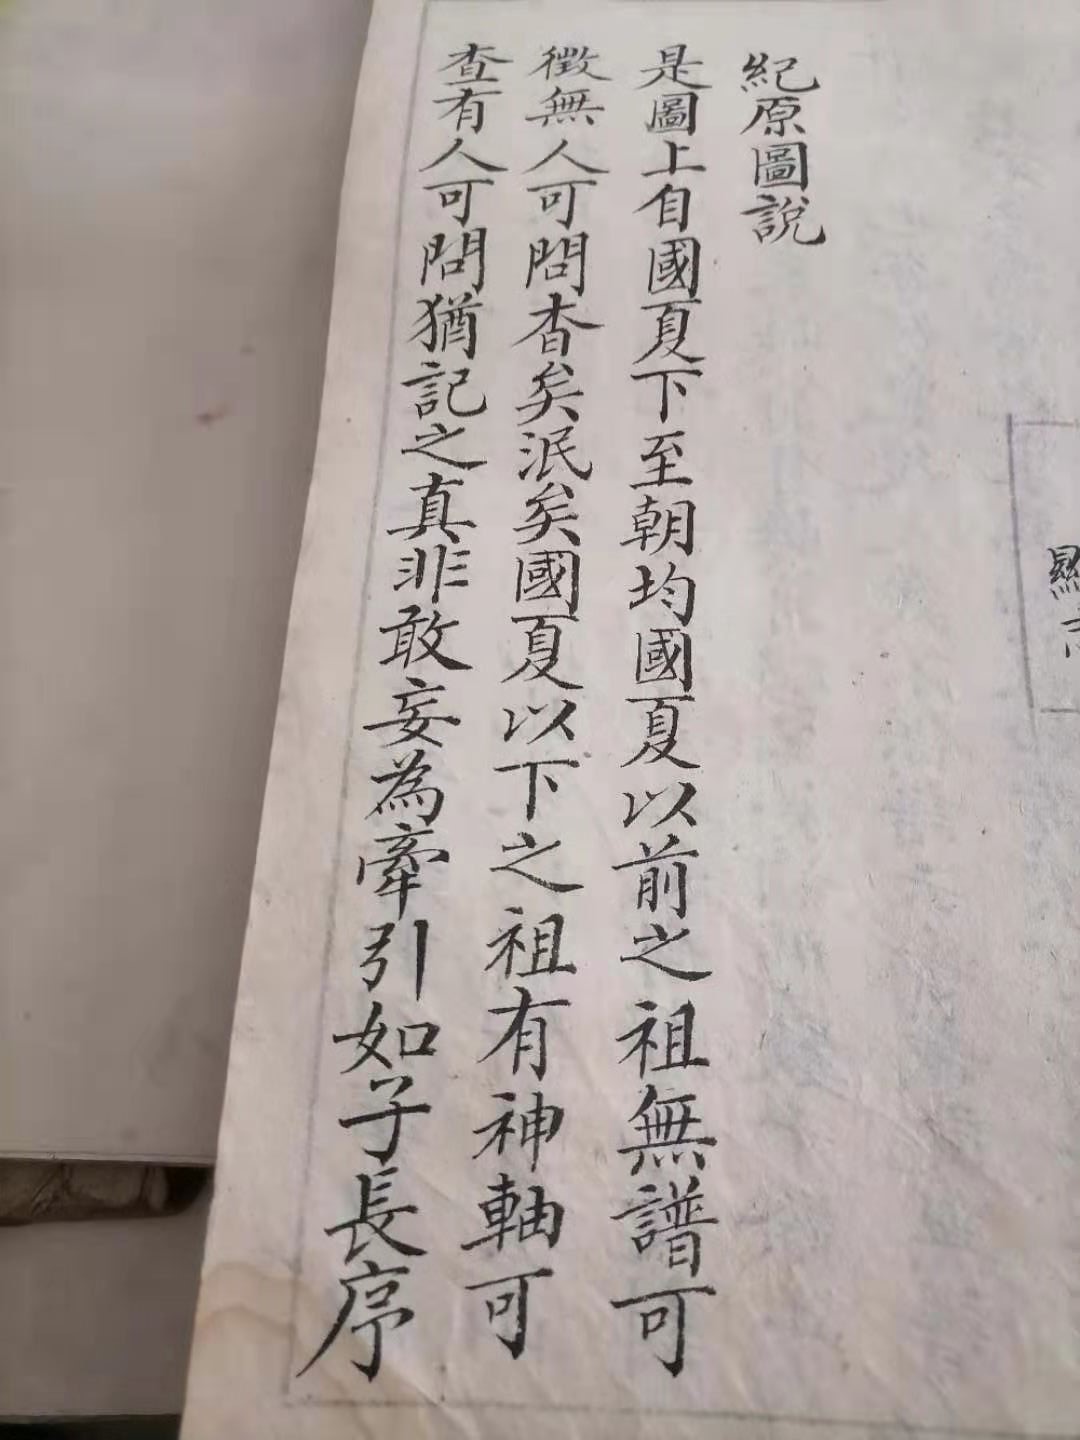 紀原圖說
是圖上自國夏下至朝均國夏以前之祖無譜可
徵無人可問杳矣泯矣國夏以下之祖有神軸可
查有人可問猶記之真非敢妄為牽引如子長序
顯